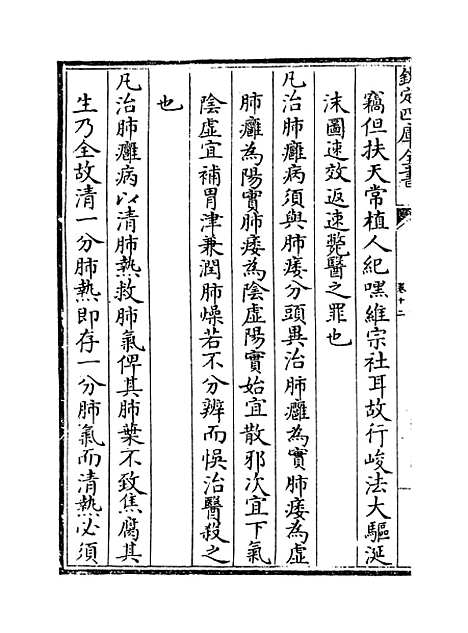 欽定四庫全書
卷十二
竊但扶天常植人紀嘿維宗社耳故行峻法大驅涎
沫圖速效返速斃醫之罪也
凡治肺癰病須與肺痿分頭異治肺癰為實肺痿為虛
肺癰為陽實肺痿為陰虛陽實始宜散邪次宜下氣
陰虛宜補胃津兼潤肺燥若不分辨而悞治醫殺之
也
凡治肺癰病以清肺熱救肺氣俾其肺葉不致焦腐其
生乃全故清一分肺熱即存一分肺氣而清熱必須